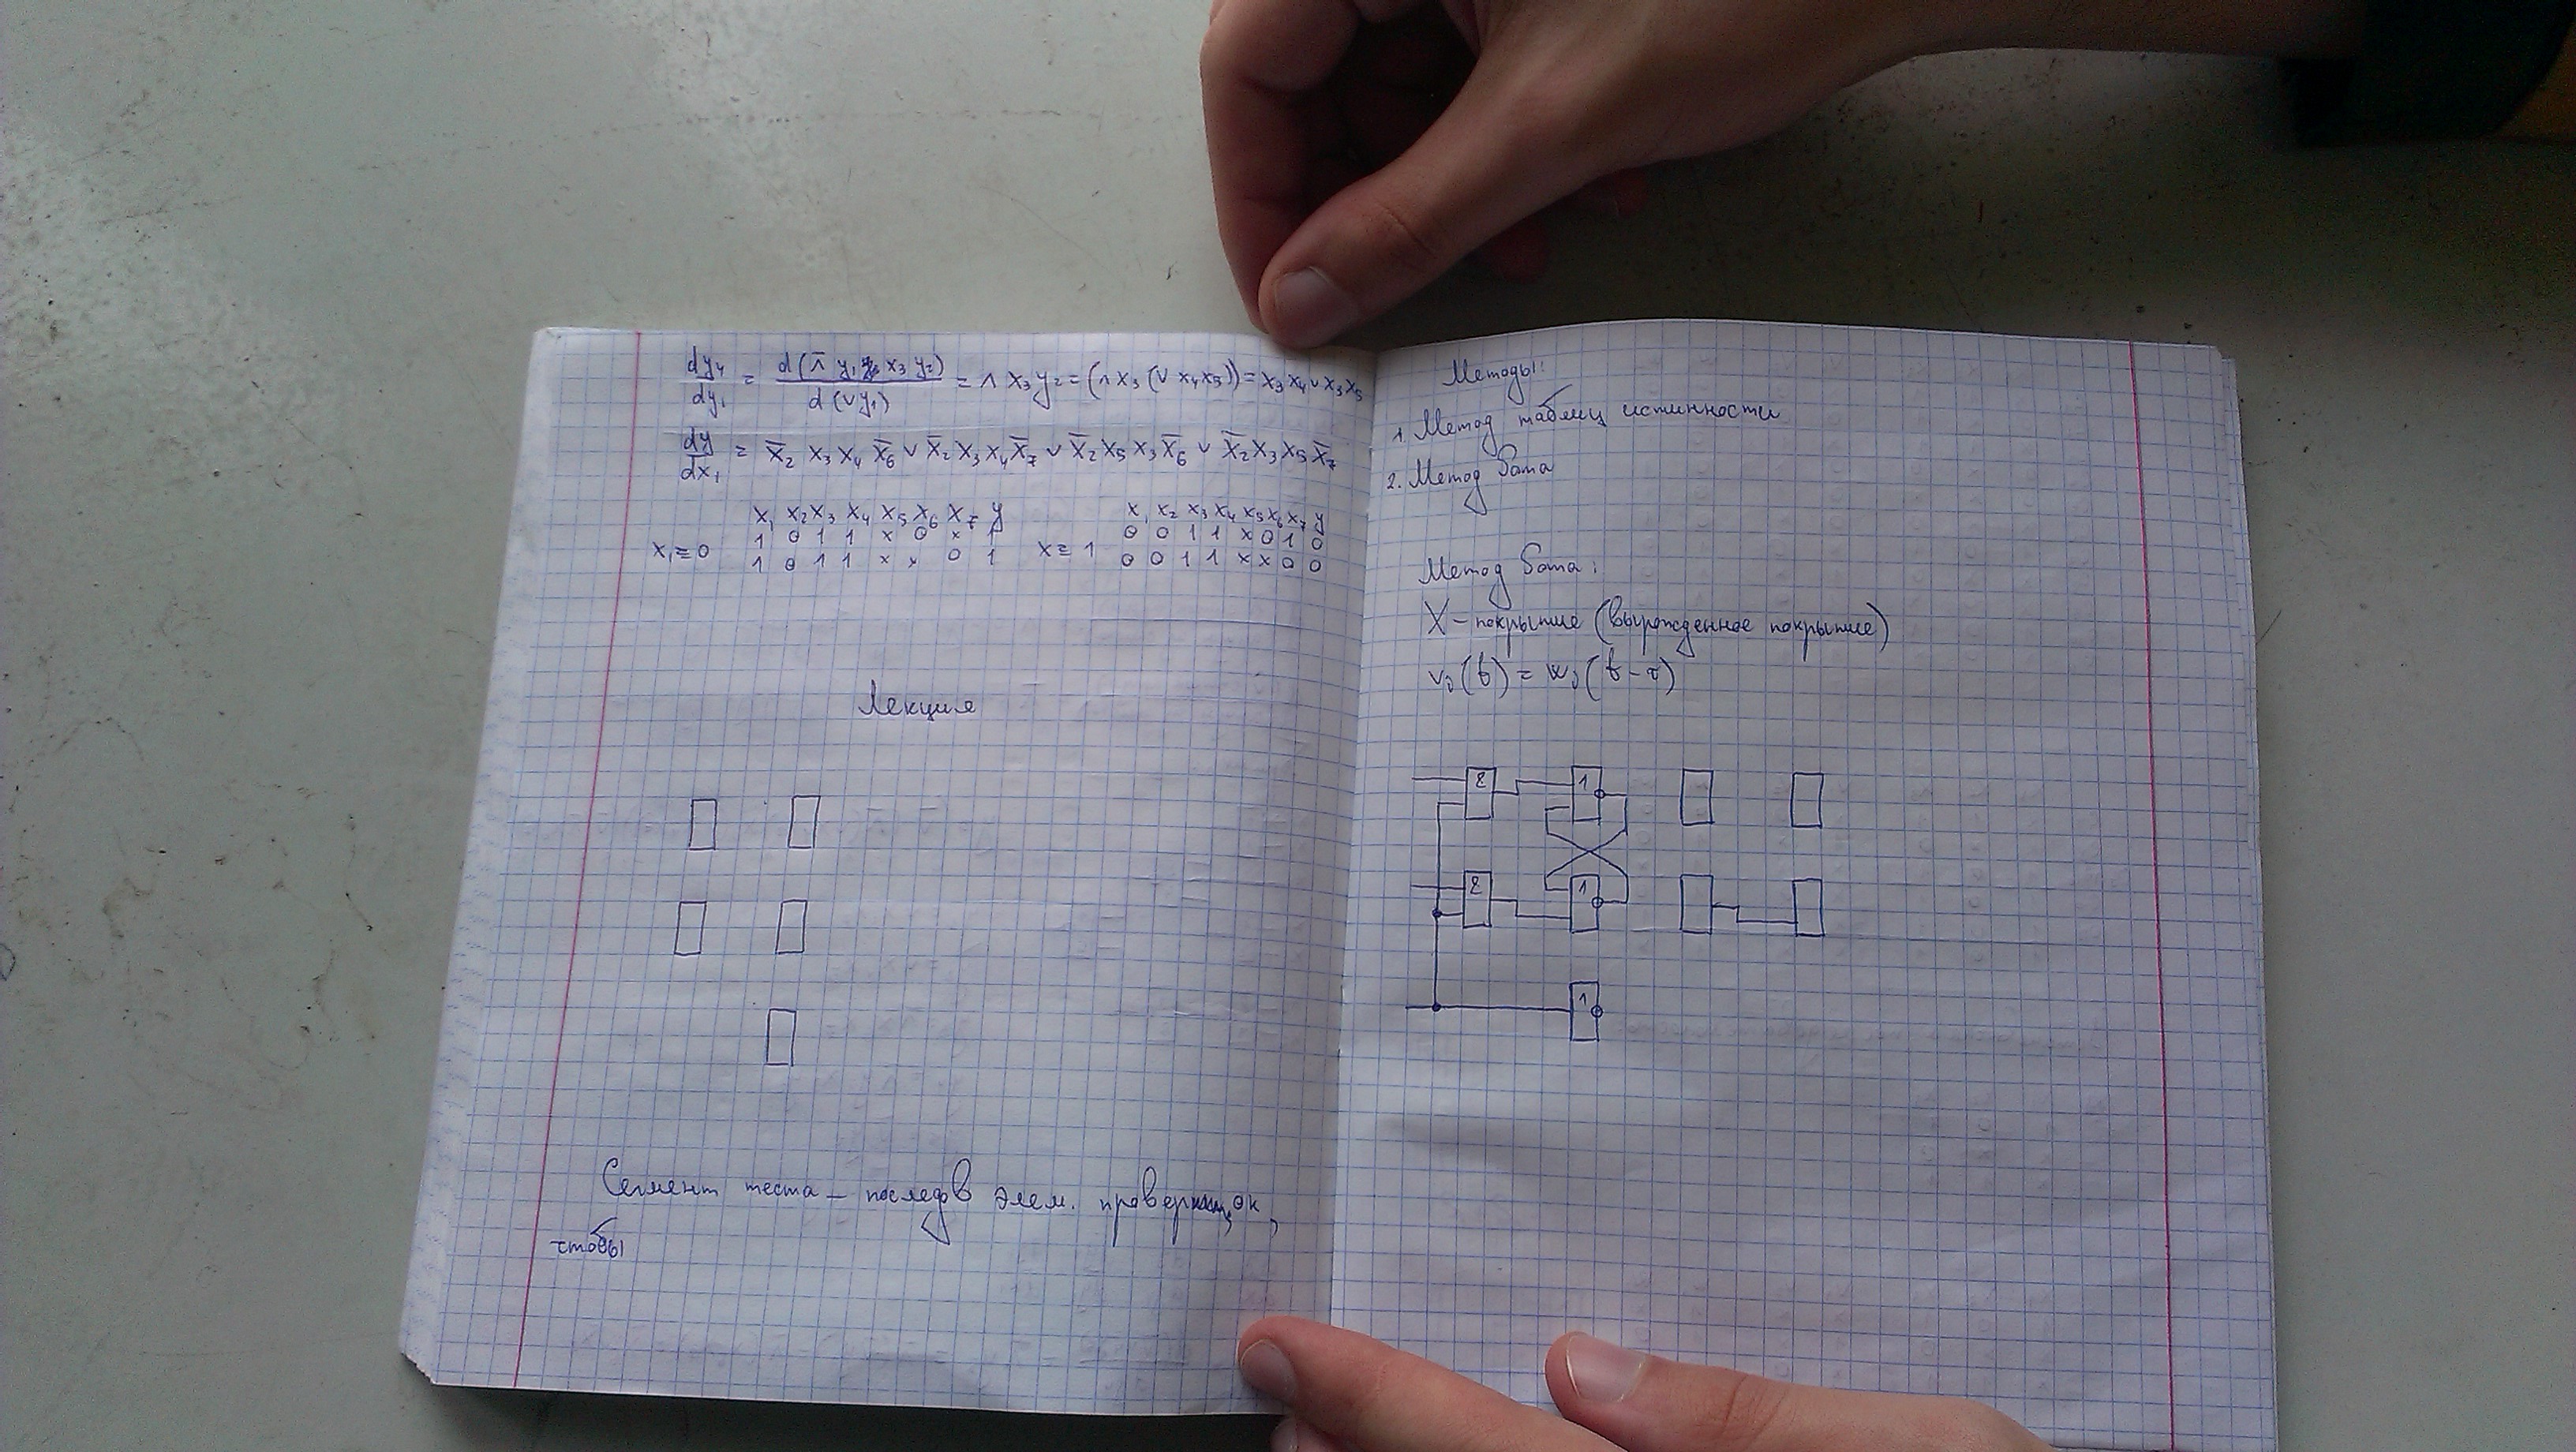 dy₄/dy₁ = d(⊼ y₁ x₃ y₂)/d(∨y₁) = ∧ x₃ y₂ = (∧ x₃ (∨ x₄ x₅)) = x₃ x₄ ∨ x₃ x₅
dy/dx₁ = x̅₂ x₃ x₄ x̅₆ ∨ x̅₂ x₃ x₄ x̅₇ ∨ x̅₂ x₅ x₃ x̅₆ ∨ x̅₂ x₃ x₅ x̅₇
x₁ x₂ x₃ x₄ x₅ x₆ x₇ y
x₁ ≡ 0
1 0 1 1 x 0 x 1
1 0 1 1 x x 0 1
x₁ x₂ x₃ x₄ x₅ x₆ x₇ y
x ≡ 1
0 0 1 1 x 0 1 0
0 0 1 1 x x 0 0
Лекция
Сегмент теста – последов элем. провер
чтобы
Методы:
1. Метод таблиц истинности
2. Метод Рота
Метод Рота:
X – покрытие (вырожденное покрытие)
(t) = (t-τ)
& 1
& 1
1